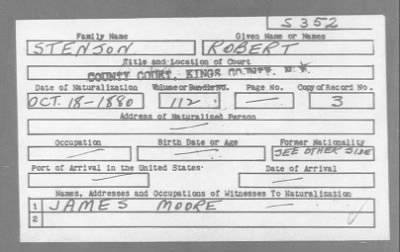 S 352
Family Name Given Name or Names
STENSON ROBERT
Title and Location of Court
COUNTY COURT, KINGS COUNTY. N.Y.
Date of Naturalization Volume or Bundle No. Page No. Copy of Record No.
OCT. 18-1880 112 — 3
Address of Naturalized Person
—
Occupation Birth Date or Age Former Nationality
— — SEE OTHER SIDE
Port of Arrival in the United States Date of Arrival
— —
Names, Addresses and Occupations of Witnesses To Naturalization
1 JAMES MOORE —
2